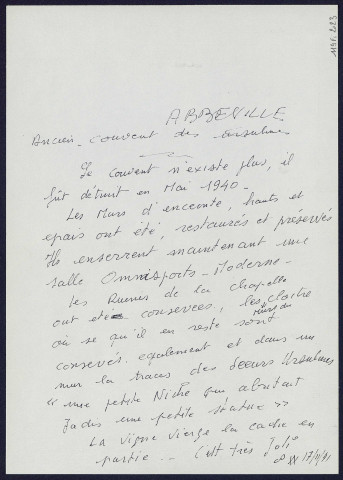 ABBEVILLE
Ancien - couvent des Ursulines
Le couvent n'existe plus, il
fût détruit en Mai 1940 -
Les Murs d'enceinte, hauts et
epais ont été, restaurés et préservés
Ils enserrent maintenant une
salle Omnisports - Moderne -
Les Ruines de la chapelle
ont eté conservées, les cloitre
où se qu'il en reste sont
conservés également et dans un
mur la traces des Soeurs Ursulines
"une petite Niche qui abritait
Jadis une petite statue >>
La vigne vierge la cache en
partie - C'est très Joli
17/11/91